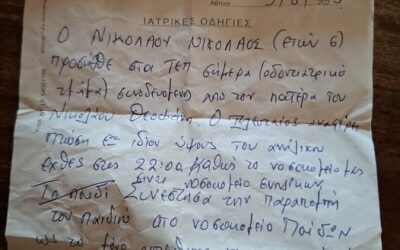 Αθήνα
ΙΑΤΡΙΚΕΣ ΟΔΗΓΙΕΣ
Ο ΝΙΚΟΛΑΟΥ ΝΙΚΟΛΑΟΣ (ετών 6)
προσήλθε στα ΤΕΠ σήμερα (οδοντιατρικό
τμήμα) συνοδευόμενος από τον πατέρα του
Νικολάου. Ο τελευταίος αναφέρει
πτώση εξ ιδίου ύψους του ανηλίκου
εχθές στις 22:00. Καθώς το νοσοκομείο μας
είναι νοσοκομείο ενηλίκων
Το παιδί Συνεστήσα την παραπομπή
του παιδιού στο νοσοκομείο Παίδων
ως το